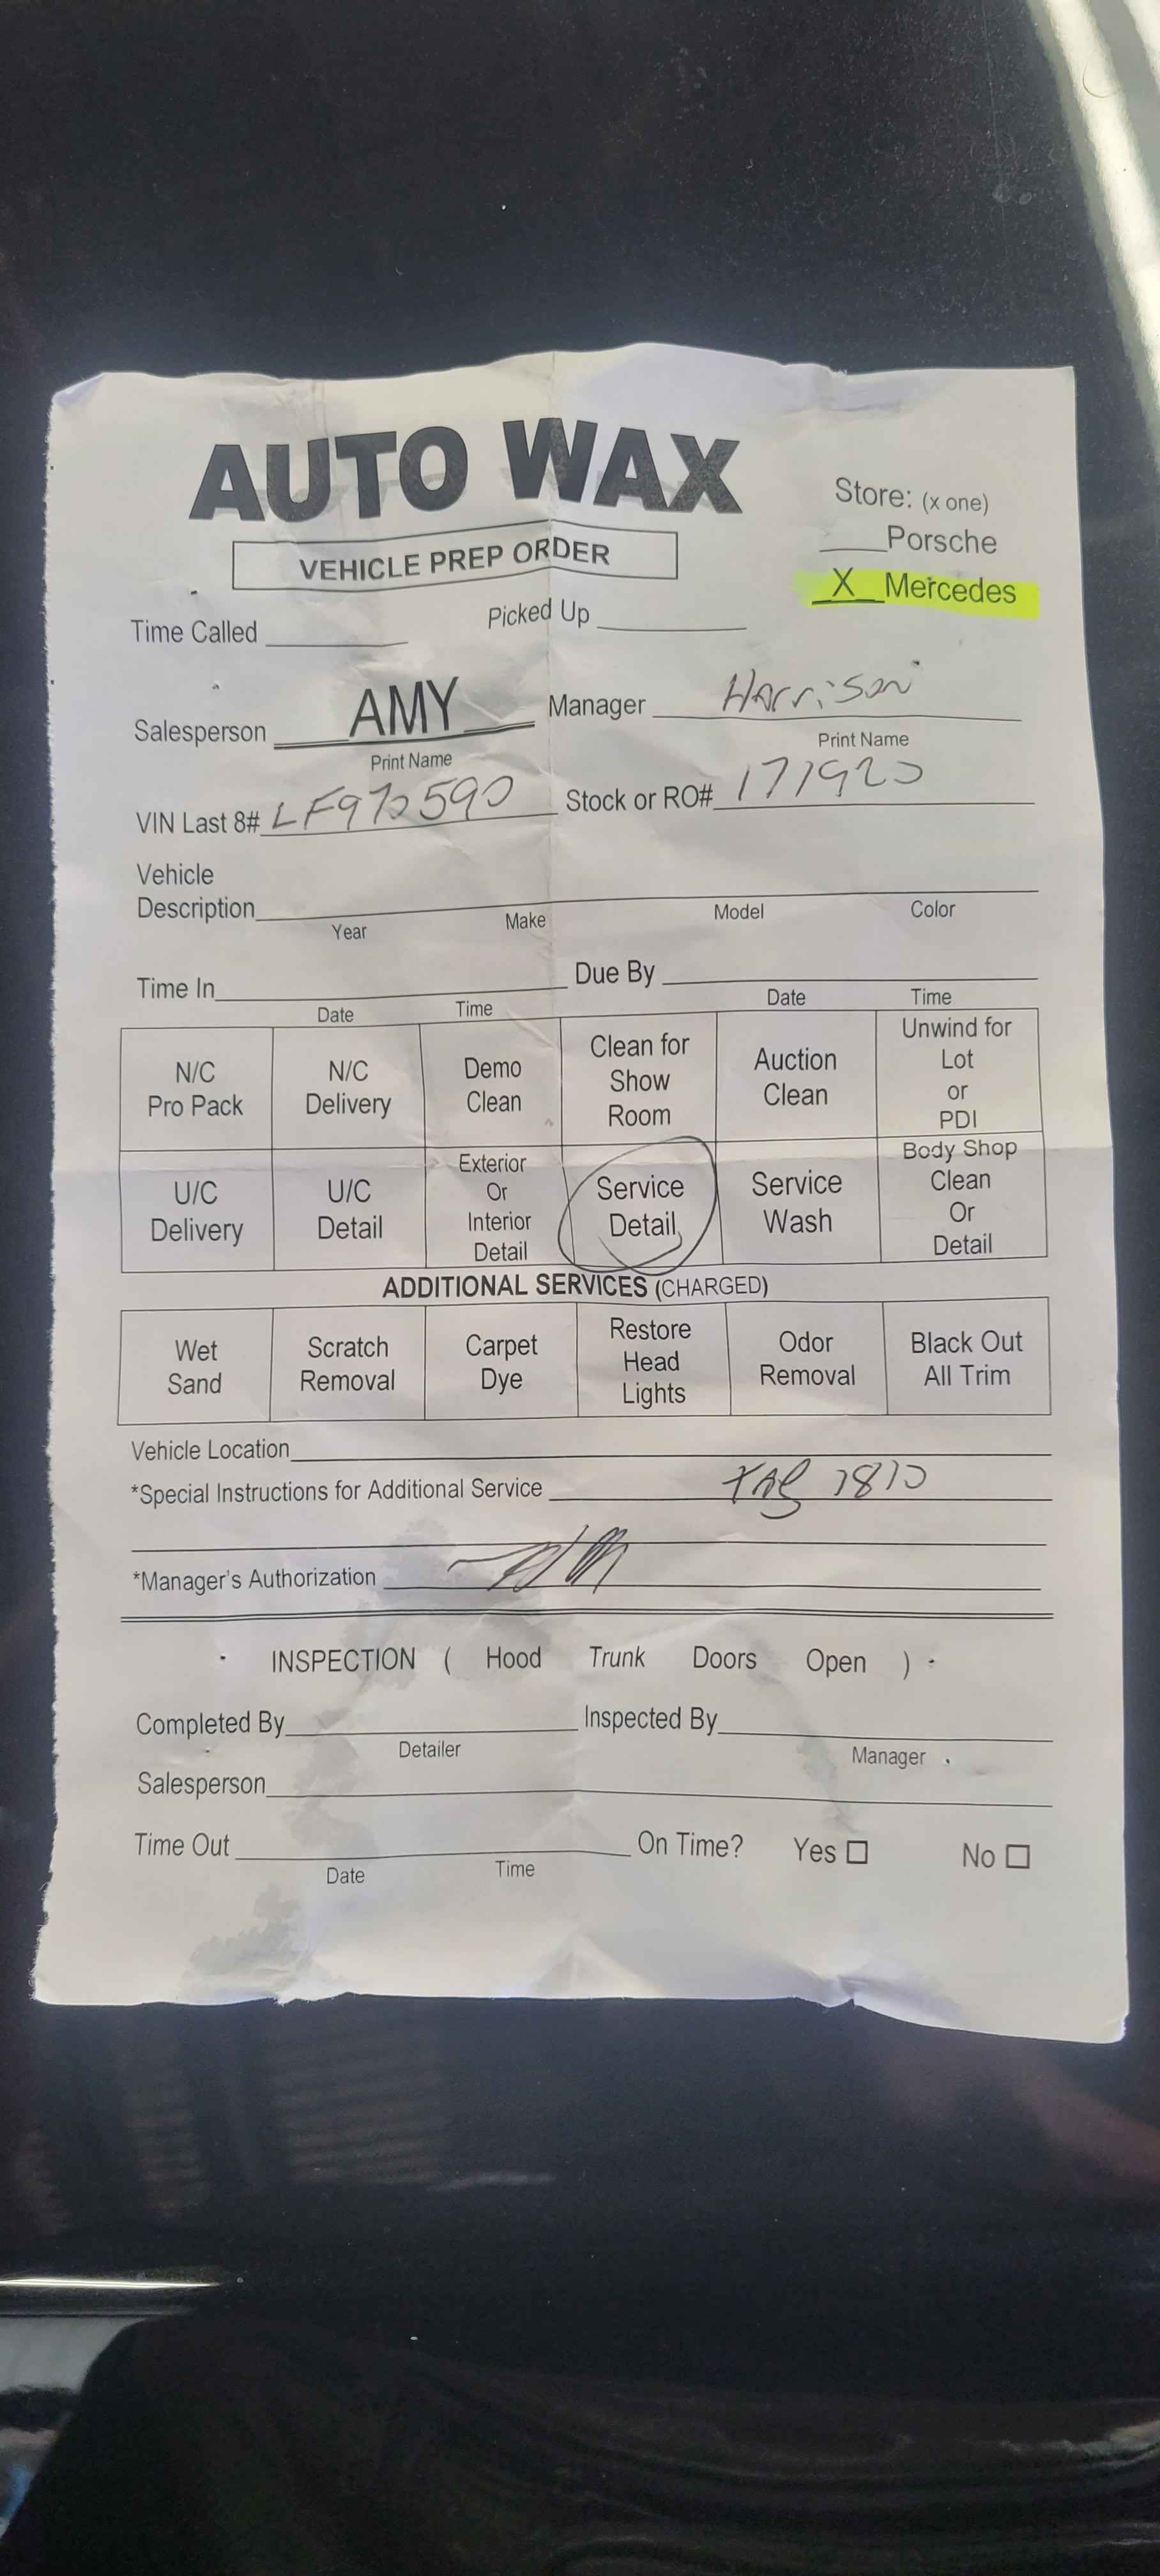 AUTO WAX
Store: (x one)
VEHICLE PREP ORDER
___Porsche
_X_Mercedes
Time Called ________ Picked Up ________
Salesperson AMY Manager Harrison
Print Name Print Name
VIN Last 8# LF970590 Stock or RO# 171920
Vehicle
Description
Year Make Model Color
Time In Due By
Date Time Date Time
N/C Pro Pack
N/C Delivery
Demo Clean
Clean for Show Room
Auction Clean
Unwind for Lot or PDI
U/C Delivery
U/C Detail
Exterior Or Interior Detail
Service Detail
Service Wash
Body Shop Clean Or Detail
ADDITIONAL SERVICES (CHARGED)
Wet Sand
Scratch Removal
Carpet Dye
Restore Head Lights
Odor Removal
Black Out All Trim
Vehicle Location
*Special Instructions for Additional Service TAG 1810
*Manager's Authorization
INSPECTION ( Hood Trunk Doors Open )
Completed By Inspected By
Detailer Manager
Salesperson
Time Out On Time? Yes ☐ No ☐
Date Time